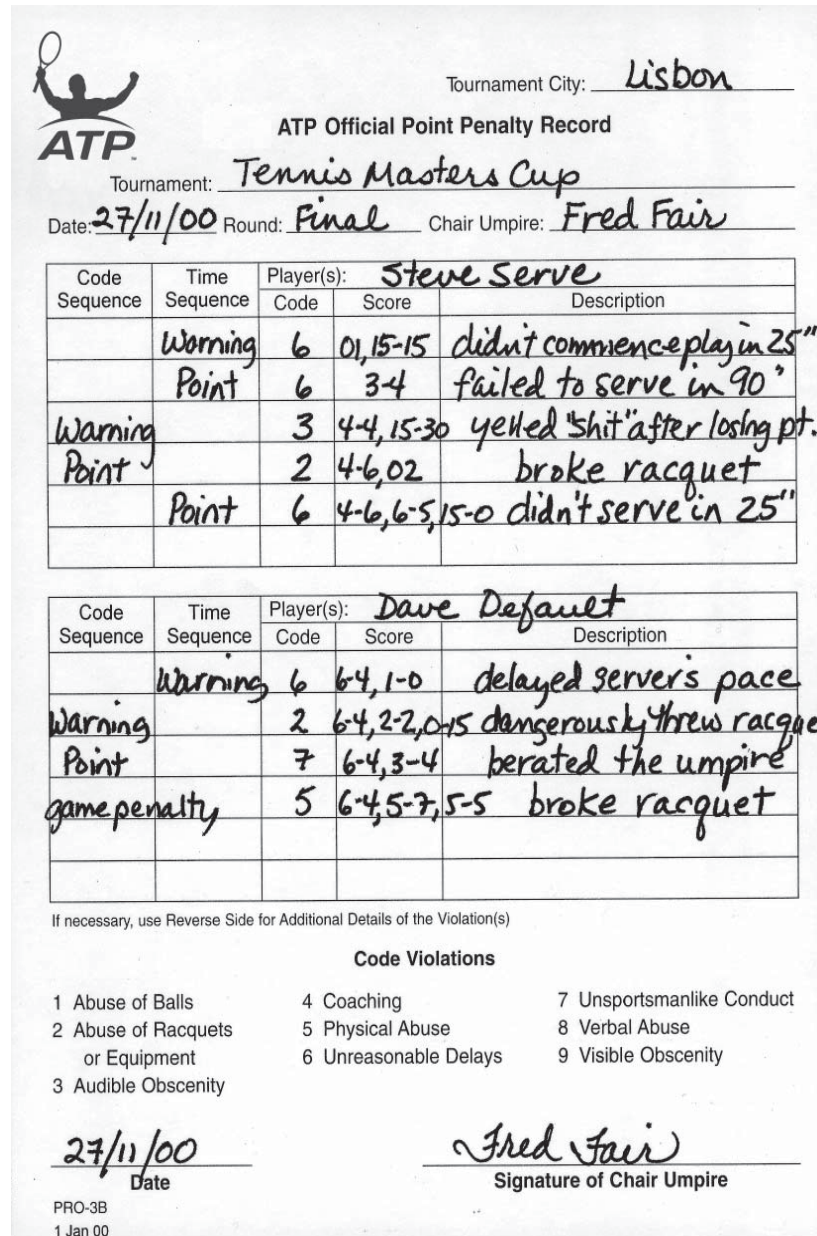 Tournament City: Lisbon
ATP
ATP Official Point Penalty Record
Tournament: Tennis Masters Cup
Date: 27/11/00 Round: Final Chair Umpire: Fred Fair
Code Sequence Time Sequence Player(s): Steve Serve
Code Score Description
Warning 6 01,15-15 didn't commence play in 25"
Point 6 3-4 failed to serve in 90"
Warning 3 4-4, 15-30 yelled "shit" after losing pt.
Point 2 4-6,02 broke racquet
Point 6 4-6,6-5,15-0 didn't serve in 25"
Code Sequence Time Sequence Player(s): Dave Default
Code Score Description
Warning 6 6-4, 1-0 delayed server's pace
Warning 2 6-4, 2-2, 0-15 dangerously threw racque
Point 7 6-4, 3-4 berated the umpire
game penalty 5 6-4, 5-7, 5-5 broke racquet
If necessary, use Reverse Side for Additional Details of the Violation(s)
Code Violations
1 Abuse of Balls
2 Abuse of Racquets
or Equipment
3 Audible Obscenity
4 Coaching
5 Physical Abuse
6 Unreasonable Delays
7 Unsportsmanlike Conduct
8 Verbal Abuse
9 Visible Obscenity
27/11/00
Date
Fred Fair
Signature of Chair Umpire
PRO-3B
1 Jan 00